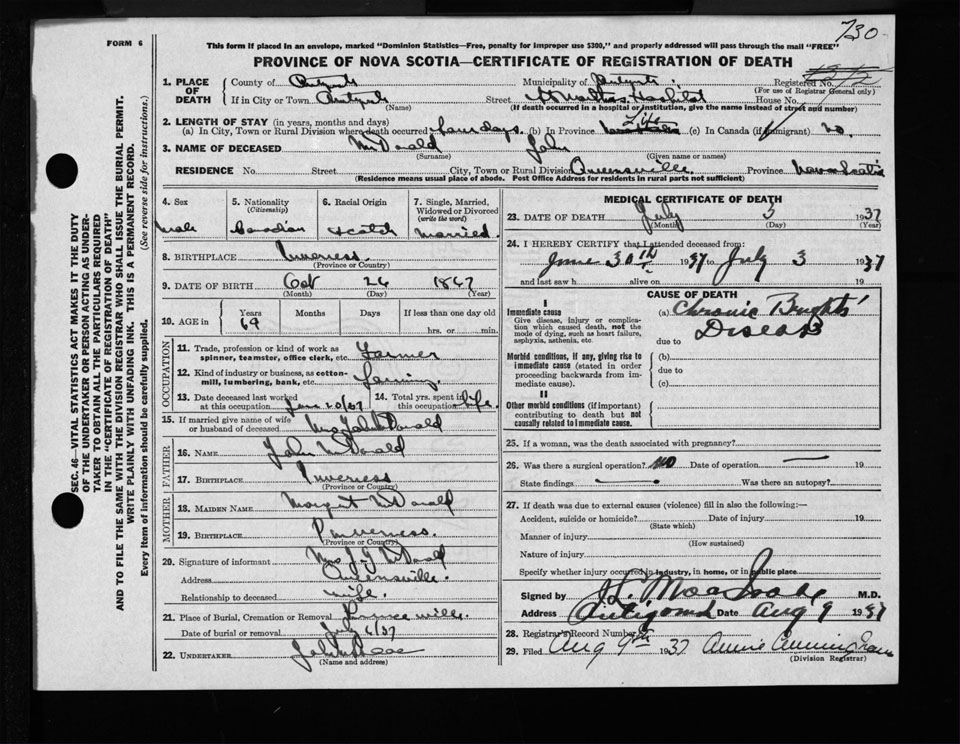 730
FORM 6
This form if placed in an envelope, marked "Dominion Statistics—Free, penalty for improper use $300," and properly addressed will pass through the mail "FREE"
PROVINCE OF NOVA SCOTIA—CERTIFICATE OF REGISTRATION OF DEATH
1. PLACE OF DEATH County of Municipality of Registered No.
(For use of Registrar General only)
If in City or Town Street St Marthas Hospital House No.
(Name) (If death occurred in a hospital or institution, give the name instead of street and number)
2. LENGTH OF STAY (in years, months and days)
(a) In City, Town or Rural Division where death occurred four days. (b) In Province Life (c) In Canada (if immigrant) no.
3. NAME OF DECEASED McDonald John
(Surname) (Given name or names)
RESIDENCE No. Street City, Town or Rural Division Queensville. Province Nova Scotia
(Residence means usual place of abode. Post Office Address for residents in rural parts not sufficient)
4. Sex Male
5. Nationality (Citizenship) Canadian
6. Racial Origin Scotch
7. Single, Married, Widowed or Divorced (write the word) Married.
8. BIRTHPLACE Inverness.
(Province or Country)
9. DATE OF BIRTH Oct 26 1867
(Month) (Day) (Year)
10. AGE in Years Months Days If less than one day
69 hrs. or min.
OCCUPATION
11. Trade, profession or kind of work as spinner, teamster, office clerk, etc. Farmer
12. Kind of industry or business, as cotton-mill, lumbering, bank, etc. Farming.
13. Date deceased last worked at this occupation June 20/37
14. Total yrs. spent in this occupation life.
15. If married give name of wife or husband of deceased Mrs John McDonald
FATHER
16. NAME John McDonald
17. BIRTHPLACE Inverness
(Province or Country)
MOTHER
18. MAIDEN NAME Margret McDonald
19. BIRTHPLACE Inverness.
(Province or Country)
20. Signature of informant Mrs J McDonald
Address Queensville.
Relationship to deceased wife.
21. Place of Burial, Cremation or Removal Princeville.
Date of burial or removal July 6/37
22. UNDERTAKER John
(Name and address)
MEDICAL CERTIFICATE OF DEATH
23. DATE OF DEATH July 3 1937
(Month) (Day) (Year)
24. I HEREBY CERTIFY that I attended deceased from:
June 30th 1937 to July 3 1937
and last saw h alive on 19
CAUSE OF DEATH
I
Immediate cause
Give disease, injury or complication which caused death, not the mode of dying, such as heart failure, asphyxia, asthenia, etc.
(a) Chronic Brights' Disease
due to
Morbid conditions, if any, giving rise to immediate cause (stated in order proceeding backwards from immediate cause).
(b)
due to
(c)
II
Other morbid conditions (if important) contributing to death but not causally related to immediate cause.
25. If a woman, was the death associated with pregnancy?
26. Was there a surgical operation? No Date of operation — 19
State findings — Was there an autopsy?
27. If death was due to external causes (violence) fill in also the following:—
Accident, suicide or homicide? Date of injury 19
(State which)
Manner of injury
(How sustained)
Nature of injury
Specify whether injury occurred in industry, in home, or in public place
Signed by M.D.
Address Antigonish Date Aug 9 1937
28. Registrar's Record Number
29. Filed Aug 9th 1937 Annie Cunningham
(Division Registrar)
SEC. 46—VITAL STATISTICS ACT MAKES IT THE DUTY
OF THE UNDERTAKER OR PERSON ACTING AS UNDER-
TAKER TO OBTAIN ALL THE PARTICULARS REQUIRED
IN THE "CERTIFICATE OF REGISTRATION OF DEATH"
AND TO FILE THE SAME WITH THE DIVISION REGISTRAR WHO SHALL ISSUE THE BURIAL PERMIT.
WRITE PLAINLY WITH UNFADING INK. THIS IS A PERMANENT RECORD.
Every item of information should be carefully supplied. (See reverse side for instructions.)